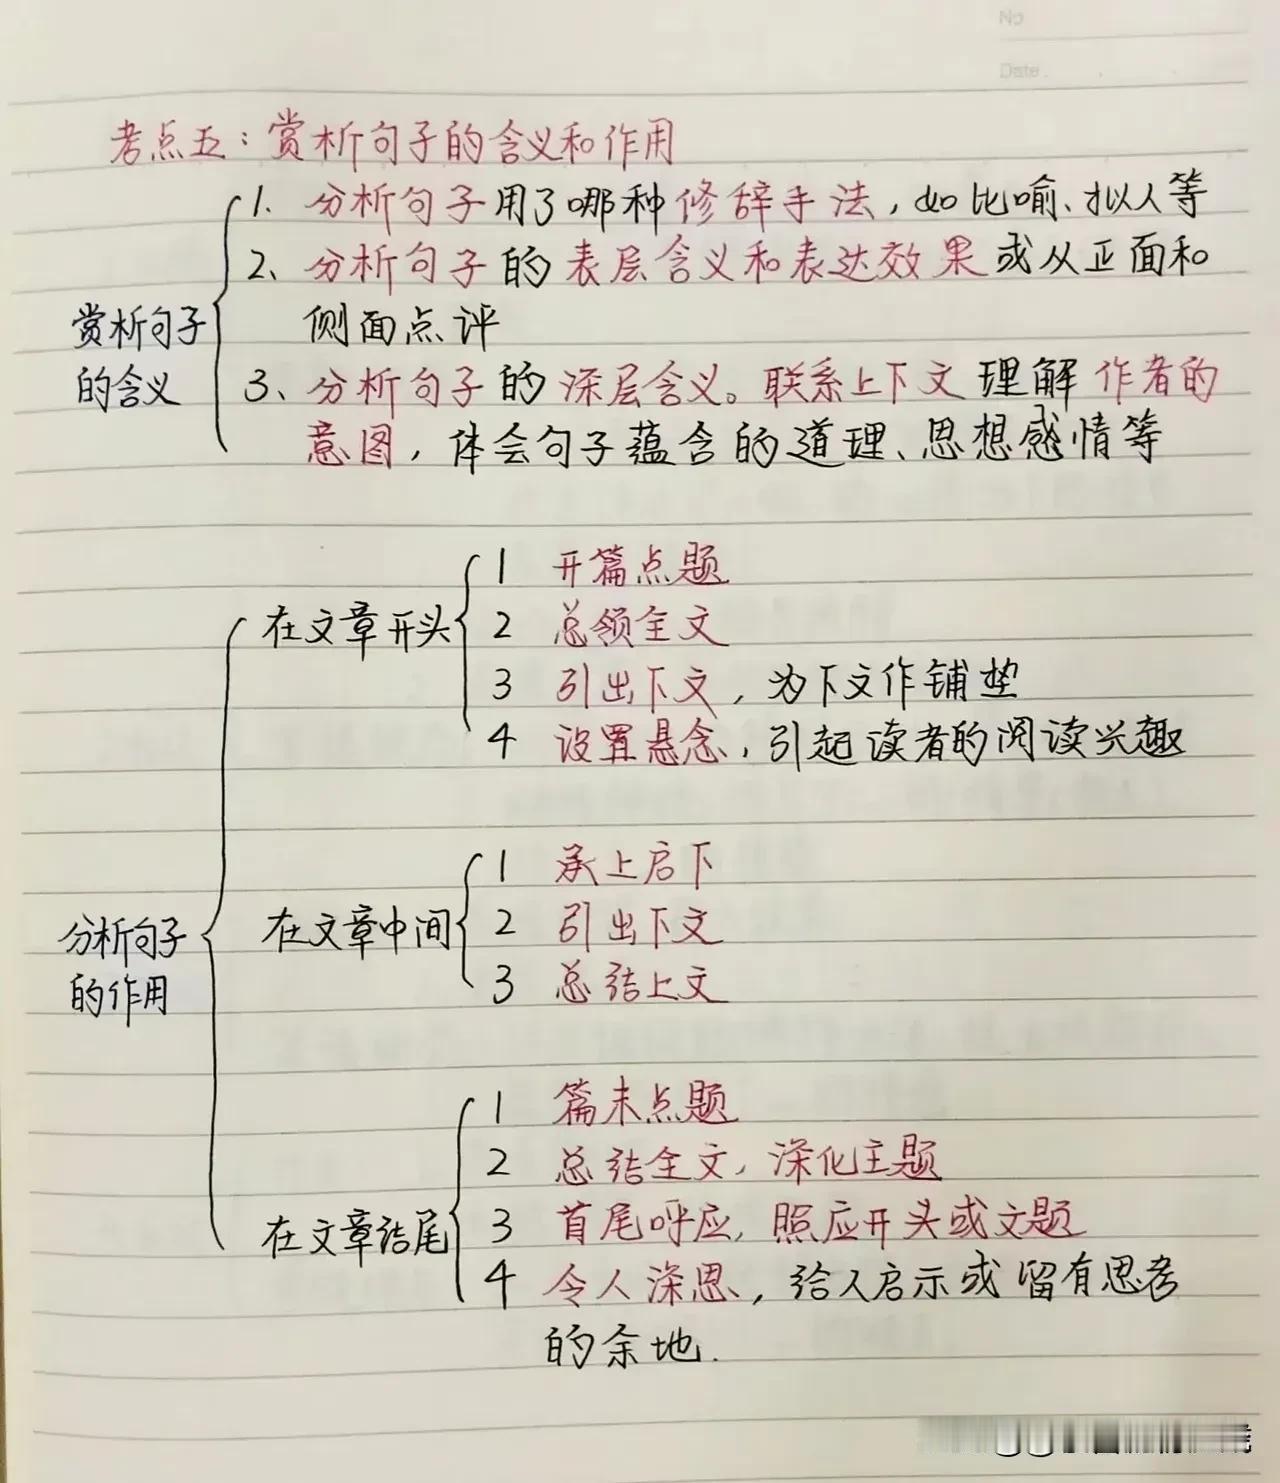 No
Date.
考点五:赏析句子的含义和作用
1、分析句子用了哪种修辞手法,如比喻、拟人等
2、分析句子的表层含义和表达效果或从正面和
侧面点评
赏析句子
的含义
3、分析句子的深层含义。联系上下文理解作者的
意图,体会句子蕴含的道理、思想感情等
分析句子
的作用
在文章开头
1 开篇点题
2 总领全文
3 引出下文,为下文作铺垫
4 设置悬念,引起读者的阅读兴趣
在文章中间
1 承上启下
2 引出下文
3 总结上文
在文章结尾
1 篇末点题
2 总结全文,深化主题
3 首尾呼应,照应开头或文题
4 令人深思,给人启示或留有思考
的余地.